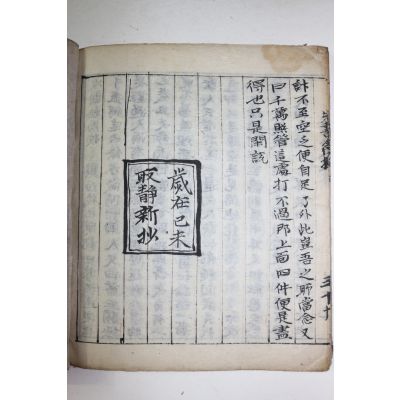 計不至空乏便自足了外此豈吾之所當念又
曰千萬照管這處打不過那上面四件便是盡
得也只是閑說
歲在己未
取靜新抄